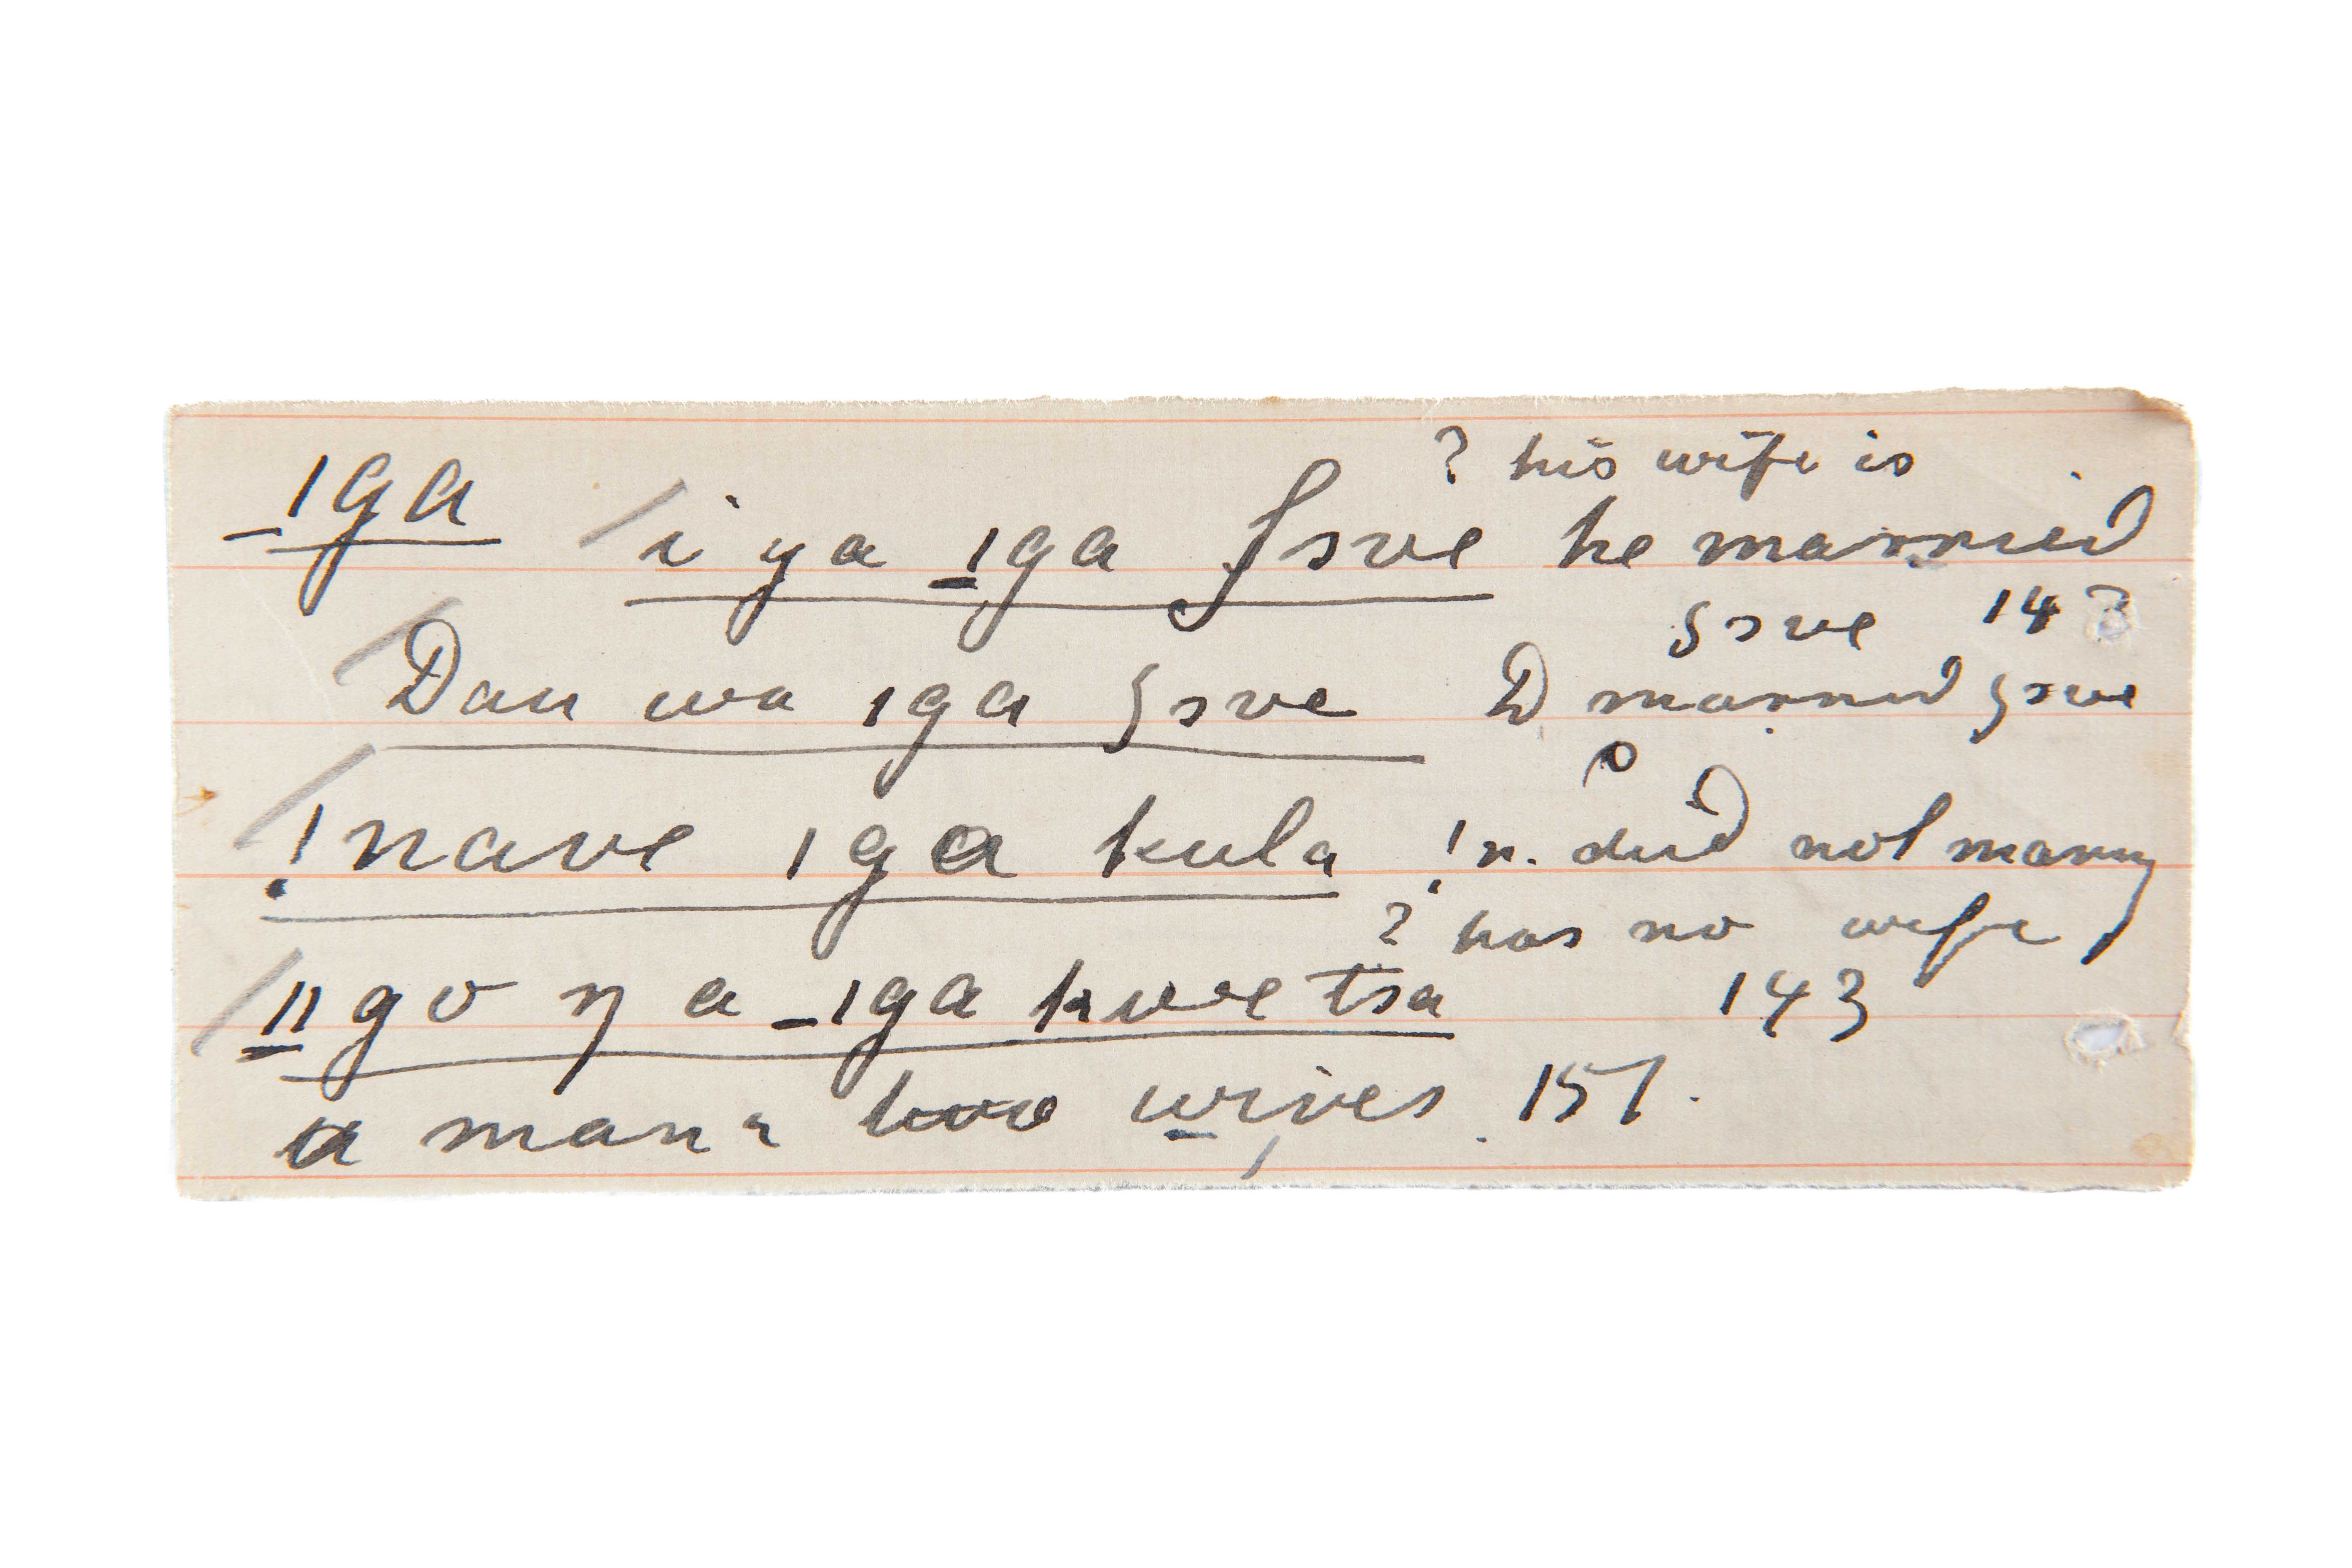 ? his wife is
_ǀga i ya _ǀga ʃɜve he married
ʃɜve 143
Dau wa ǀga ʃɜve D married ʃɜve
!nave ǀga kula !n. did not marry
? has no wife
ǁgo ŋ a _ǀga kwe tsa 143
a man's two wives. 151.